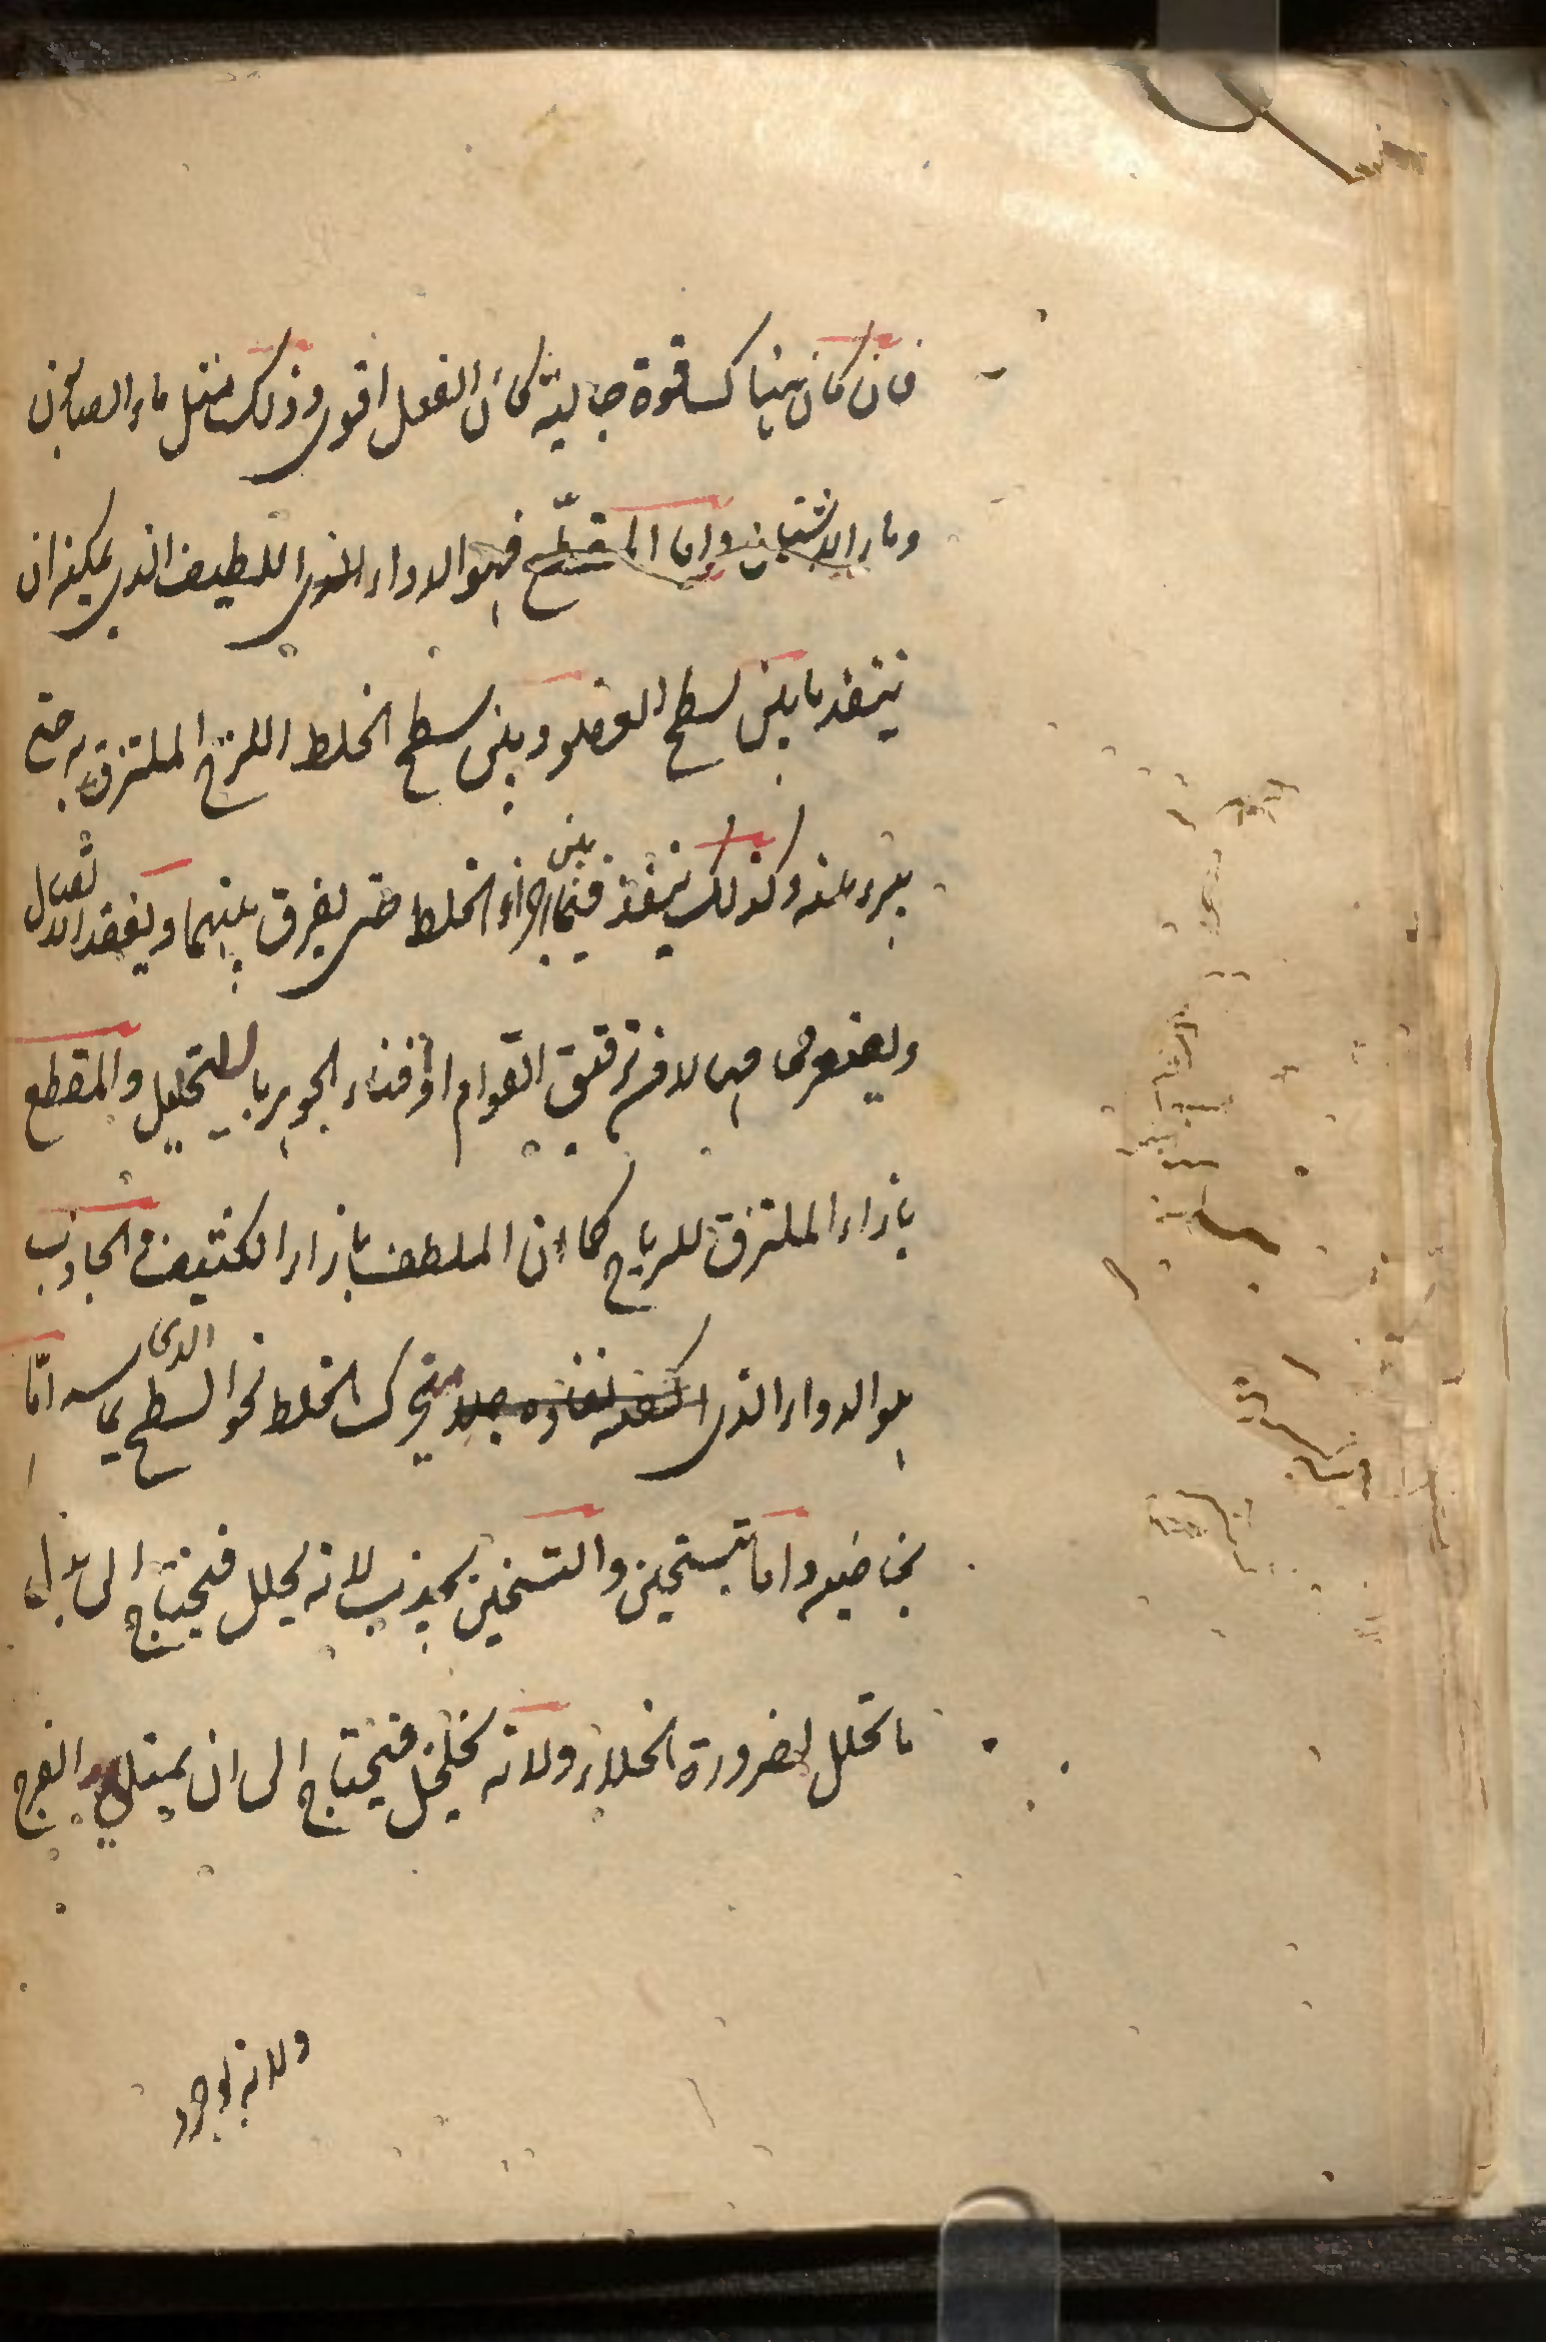 فان كان هناك قوة جالية كان الفعل اقوى وذلك مثل ماء الصابون
وماء الاشنان واما المقطّع فهو الدواء اللطيف الذى يمكنه ان
ينفذ ما بين سطح العضو وبين سطح الخلط اللزج الملتزق به حتى
يبرء عنه وكذلك ينفذ فيما بين اجزاء الخلط حتى يفرق بينهما ويفقد الاتصال
ترقيق القوام او افناء الجوهر بالتحليل والمقطع
بازاء الملتزق للزج كما ان الملطف بازاء الكثيف الجاذب
هو الدواء الذى يحرك الخلط نحو السطح الذى يماسه امّا
بخاصيه واما بتسخين والتسخين يجذب لانه يحلل فيحتاج الى بدل
ما تحلل لضرورة الخلاء ولانه يخلخل فيحتاج الى ان يمتلى الفرج
ولانه